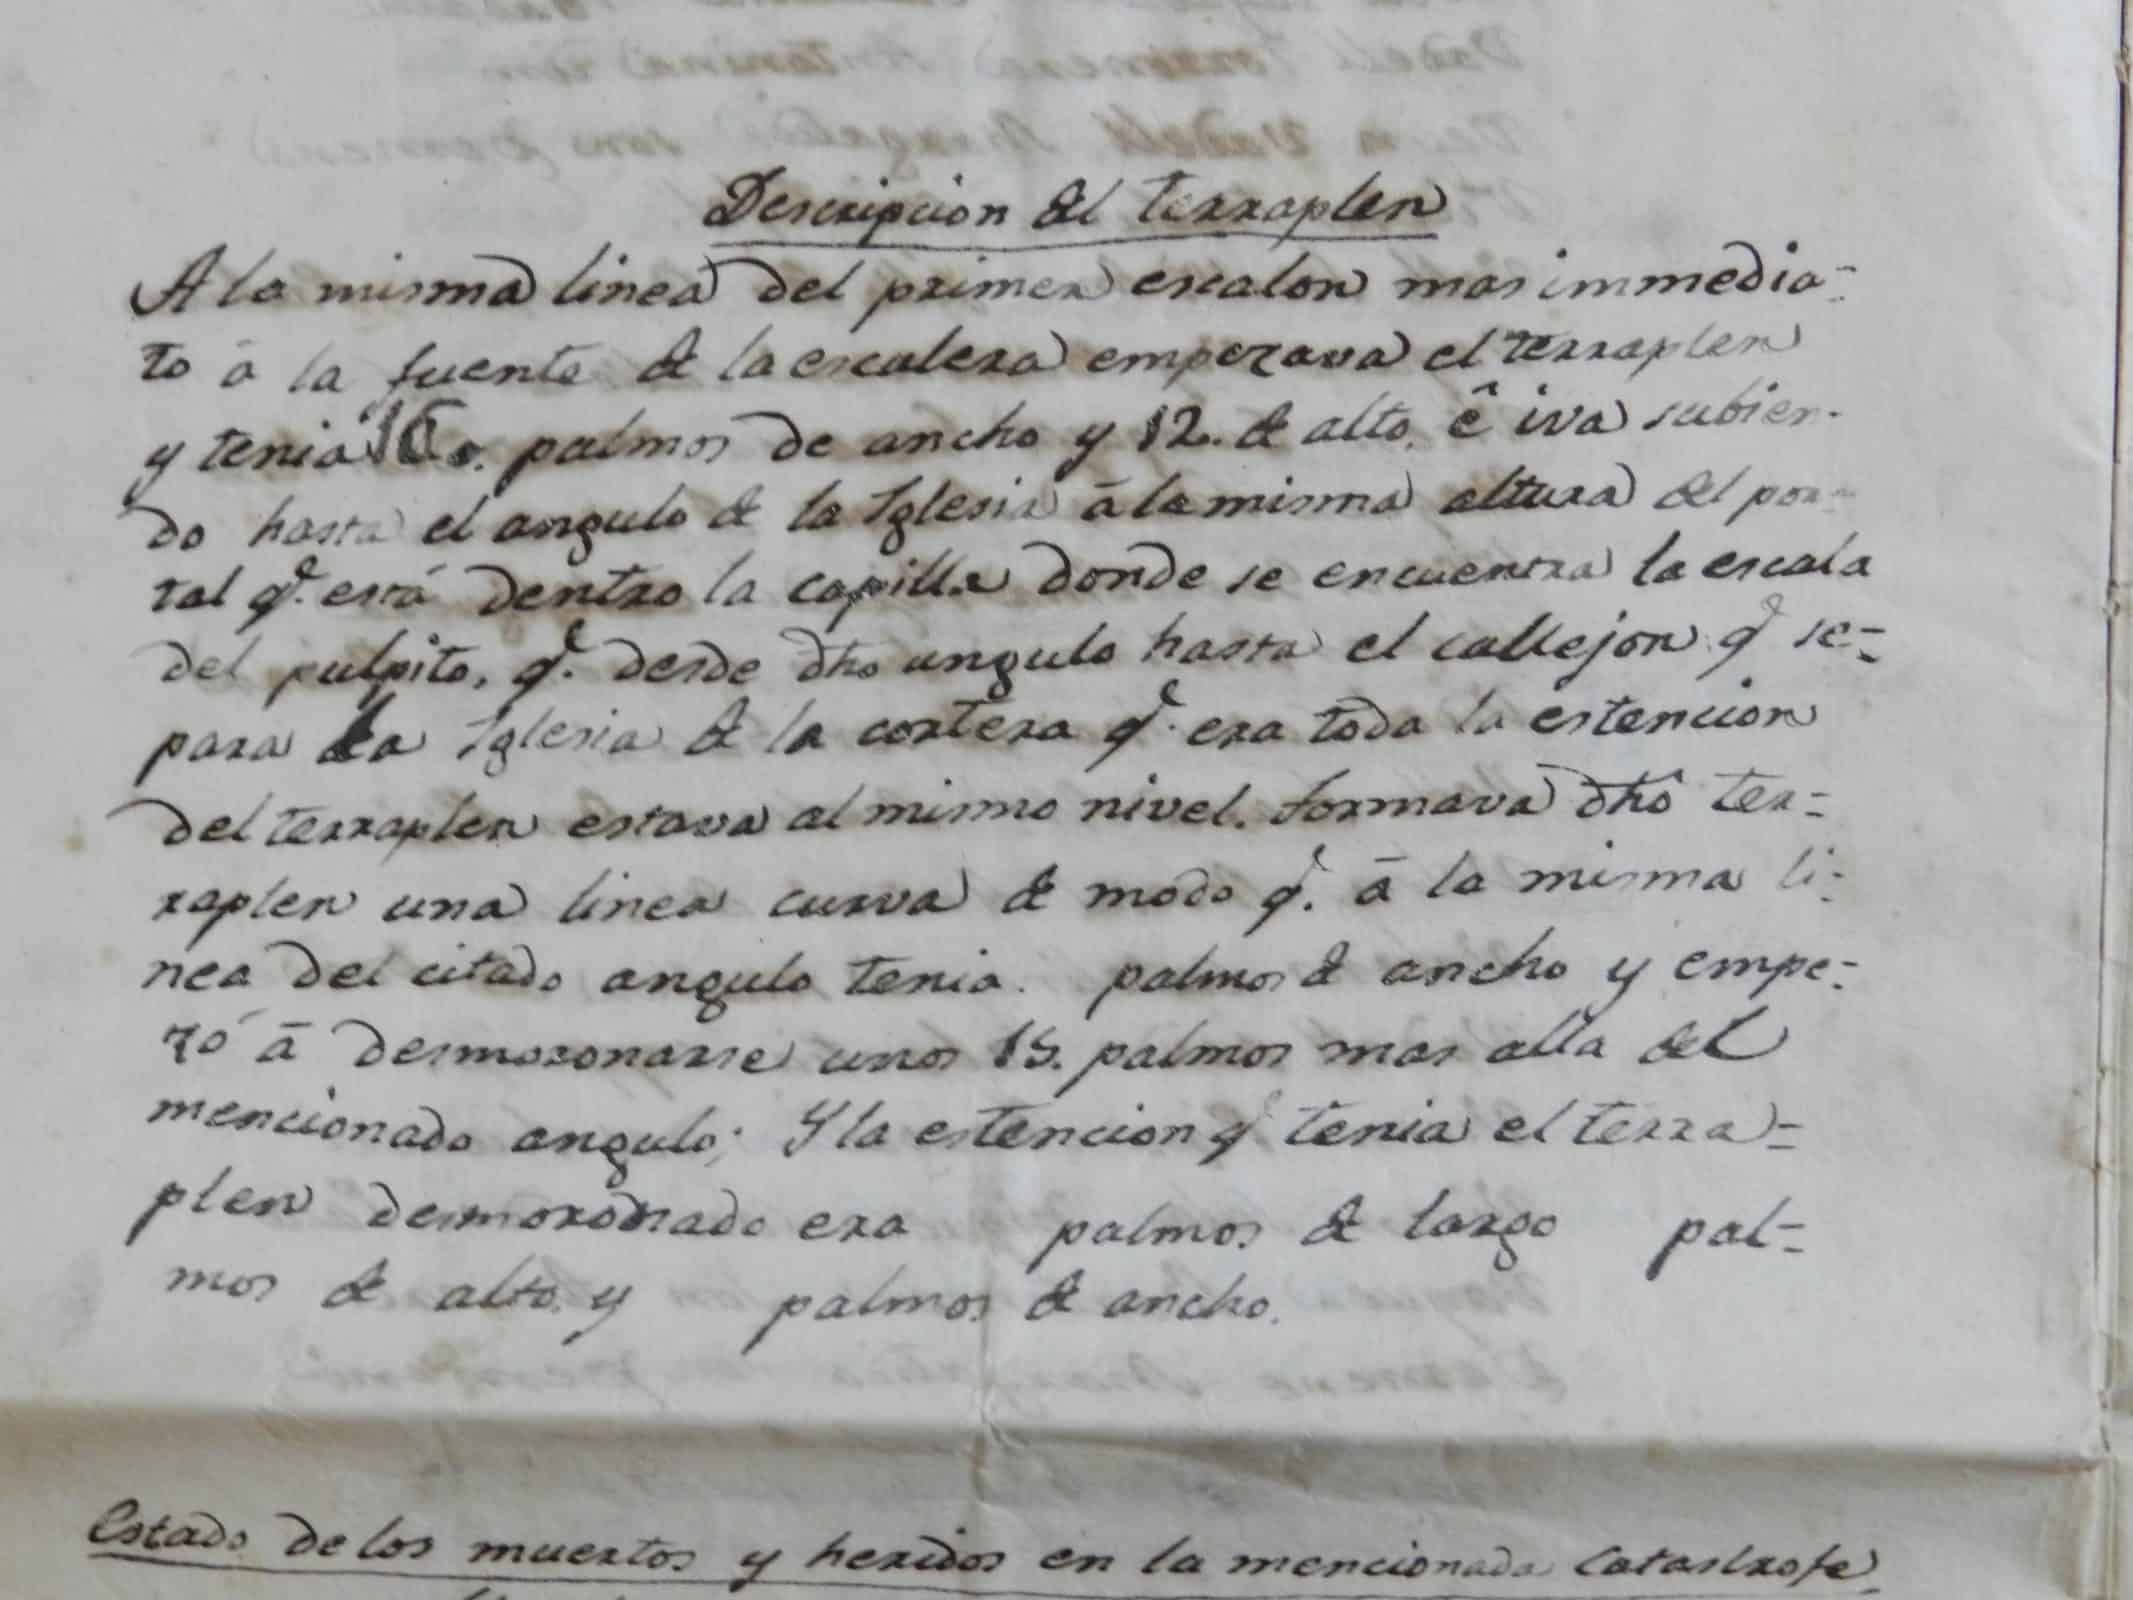 Descripcion del terraplen
A la misma linea del primer escalon mas immedia=
to á la fuente de la escalera empezava el terraplen
y tenia 16. palmos de ancho y 12. de alto, ê iva subien-
do hasta el angulo de la Iglesia à la misma altura del por-
tal q.e está dentro la capilla donde se encuentra la escala
del pulpito, q.e desde dho angulo hasta el callejon q.e se=
para la Iglesia de la cortera q.e era toda la estencion
del terraplen estava al mismo nivel. Formava dhô ter=
raplen una linea curva de modo q.e à la misma li=
nea del citado angulo tenia. palmos de ancho y empe=
zó à desmoronarse unos 15. palmos mas alla del
mencionado angulo; Y la estencion q.e tenia el terra=
plen desmoronado era palmos de largo pal=
mos de alto y palmos de ancho.
Estado de los muertos y heridos en la mencionada Catastrofe.